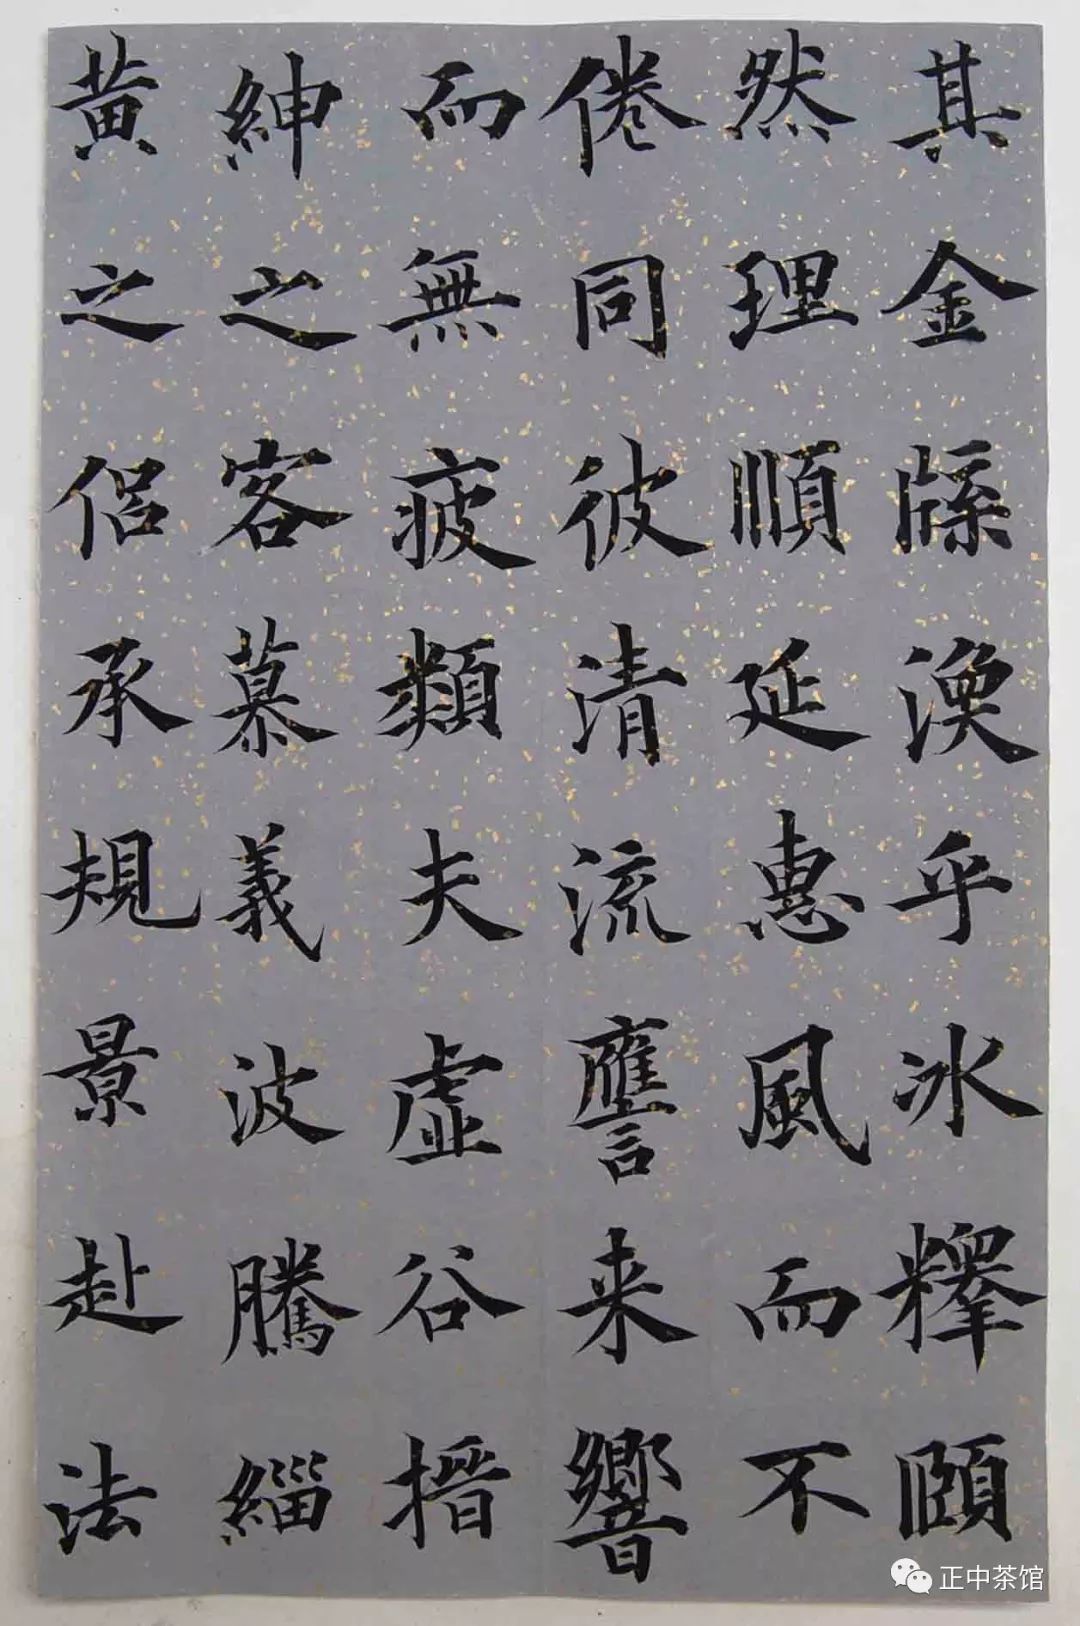 其金縢渙乎冰釋頤
然理順延惠風而不
倦同彼清流譍来響
而無疲類夫虛谷搢
紳之客慕義波騰緇
黄之侶承規景赴法
正中茶馆